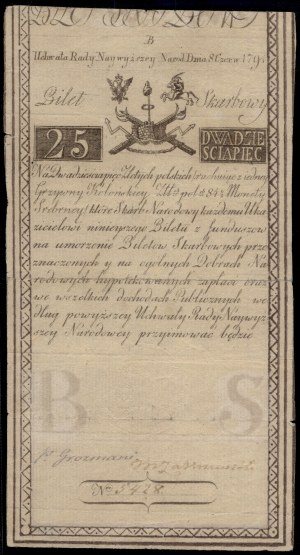 B
Uchwała Rady Naywyższey Narod. Dnia 8 Czerw. 1794
Bilet Skarbowy
25 DWADZIE
SCIAPIEĆ
Na Dwadzieścia pięć Złotych polskich rachuiąc z iedney
Grzywny Kolońskiey Złł. pol. 84½ Monety
Srebrney które Skarb Narodowy każdemu Oka
zicielowi ninieyszego Biletu z funduszow
na umorzenie Biletow Skarbowych prze
znaczonych y na ogólnych Dobrach Na
rodowych hypotekowanych zapłaci oraz
we wszelkich dochodach Publicznych we
dług powyższey Uchwały Rady Naywyż
szey Narodowey przyimować będzie
B S
P. Grozmani
M Zakrzewski
No 5428